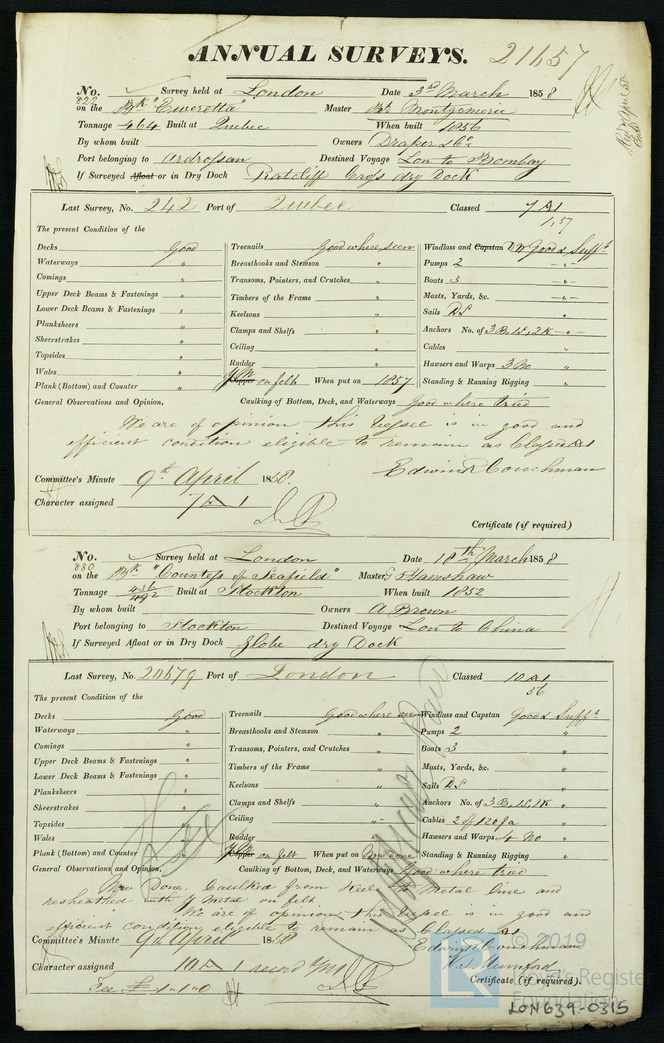 ANNUAL SURVEYS. 21457
No. 822 Survey held at London Date 3rd March 1858
on the Bk "Tweretta" Master Montgomerie
Tonnage 464 Built at Quebec When built 1856
By whom built Owners Draper & Co.
Port belonging to Ardrossan Destined Voyage Lon to Bombay
If Surveyed Afloat or in Dry Dock Ratcliff Cross dry Dock
Last Survey, No. 242 Port of Quebec Classed 7 A1
1,57
The present Condition of the
Decks Good Treenails Good where seen Windlass and Capstan Good & Sufft
Waterways " Breasthooks and Stemson " Pumps 2
Comings " Transoms, Pointers, and Crutches " Boats 3
Upper Deck Beams & Fastenings " Timbers of the Frame " Masts, Yards, &c.
Lower Deck Beams & Fastenings " Keelsons " Sails DS
Planksheers " Clamps and Shelfs " Anchors No. of 3B, 1S, 2K
Sheerstrakes " Ceiling " Cables "
Topsides " Rudder Hawsers and Warps 3 No
Wales " Copper YM on felt When put on 1857 Standing & Running Rigging "
Plank (Bottom) and Counter "
General Observations and Opinion, Caulking of Bottom, Deck, and Waterways Good where tried
We are of opinion this Vessel is in good and
efficient condition eligible to remain as Classed A1
Edwin R Couchman
Committee's Minute 9th April 1858.
Character assigned 7 A 1
Certificate (if required)
No. 880 Survey held at London Date 18th March 1858
on the Bk "Countess of Seafield" Master Hamshaw
Tonnage 436/492 Built at Stockton When built 1852
By whom built Owners A Brown
Port belonging to Stockton Destined Voyage Lon to China
If Surveyed Afloat or in Dry Dock Globe dry Dock
Last Survey, No. 20579 Port of London Classed 10 A1
56
The present Condition of the
Decks Good Treenails Good where seen Windlass and Capstan Good & Sufft
Waterways " Breasthooks and Stemson " Pumps 2 "
Comings " Transoms, Pointers, and Crutches " Boats 3 "
Upper Deck Beams & Fastenings " Timbers of the Frame " Masts, Yards, &c. "
Lower Deck Beams & Fastenings " Keelsons " Sails DS "
Planksheers " Clamps and Shelfs " Anchors No. of 3B, 1S, 1K "
Sheerstrakes " Ceiling Cables 2 of 120 fa "
Topsides " Rudder Hawsers and Warps 4 No "
Wales " Copper YM on felt When put on Now done Standing & Running Rigging "
Plank (Bottom) and Counter "
General Observations and Opinion, Caulking of Bottom, Deck, and Waterways Good where tried
Now Done. Caulked from Keel to Metal line and
resheathed with Y Metal on felt.
We are of opinion this Vessel is in good and
efficient condition eligible to remain as Classed A1
Committee's Minute 9th April 1858
Edwin R Couchman
Character assigned 10 A 1
Mumford
Certificate (if required).
Fee £1..1..0
© 2019
Lloyd's Register
Foundation
LON639-0315